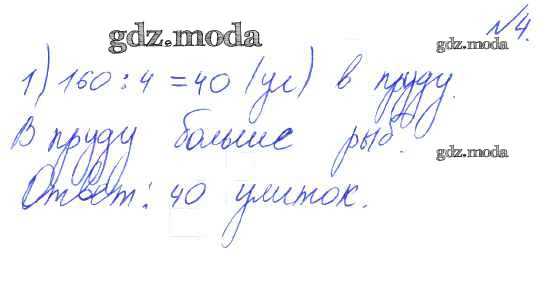 №4.
gdz.moda
gdz.moda
1) 160 : 4 = 40 (ул) в пруду.
В пруду больше рыб.
gdz.moda
Ответ: 40 улиток.